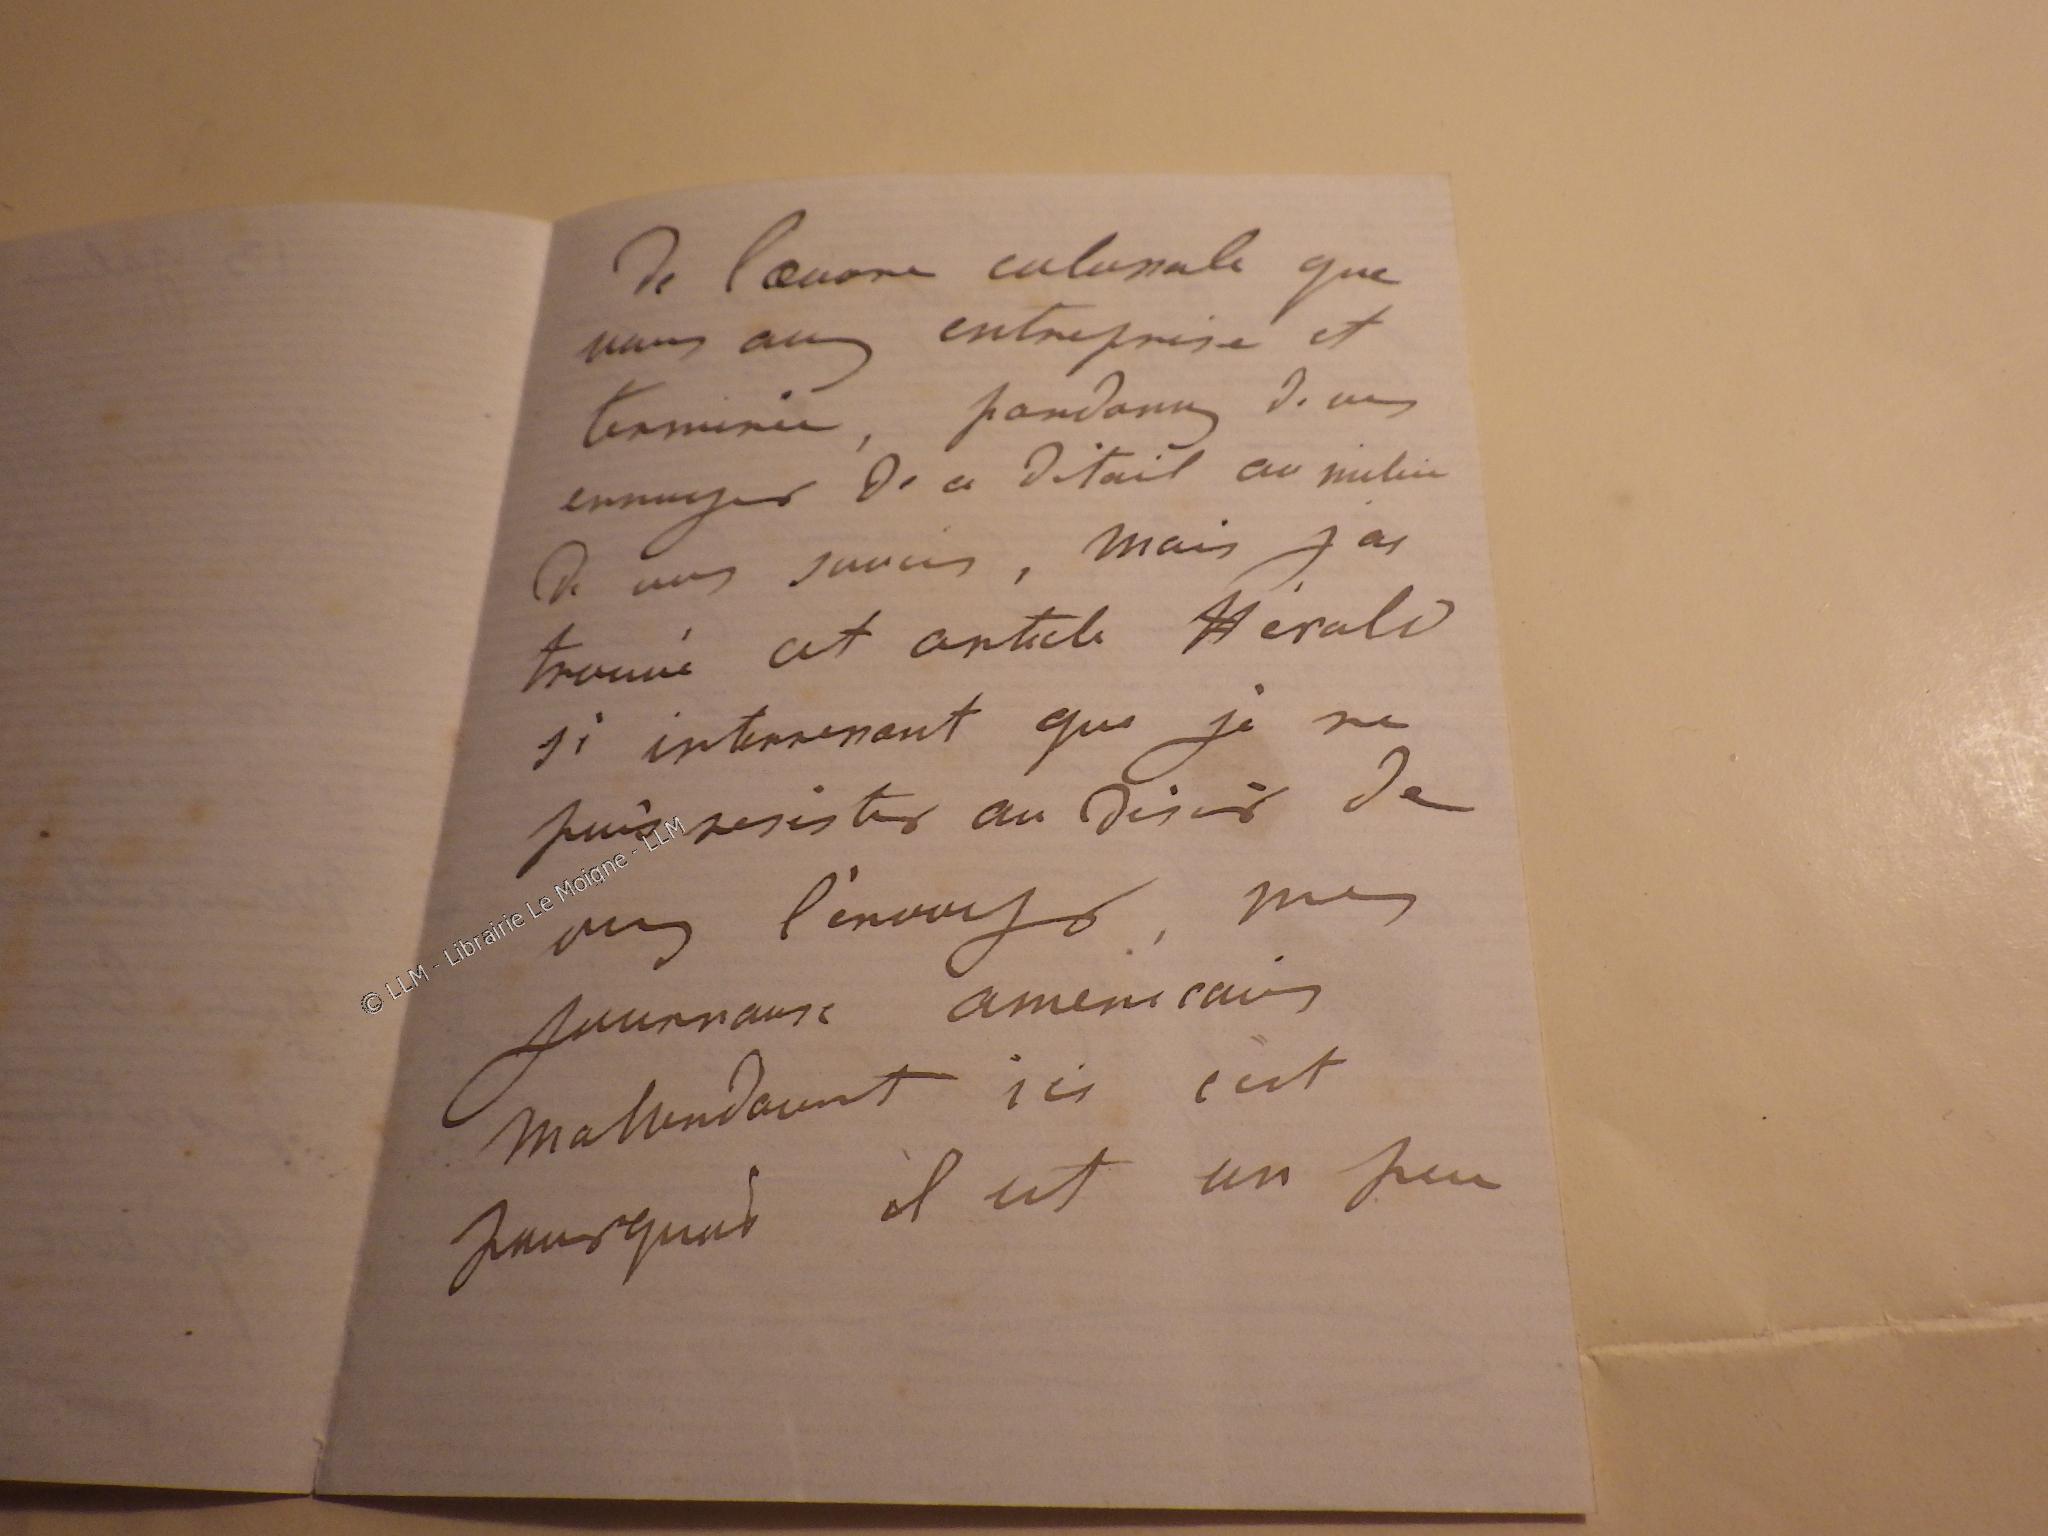 de l'œuvre colossale que
vous avez entreprise et
terminée, pardonnez de vous
ennuyer de ce détail au milieu
de vos soucis, mais j'ai
trouvé cet article Hérald
si interressant que je ne
puis resister au désir de
vous l'envoyer, mes
journaux américains
m'attendaient ici c'est
pourquoi il est un peu
© LLM - Librairie Le Moigne - LLM